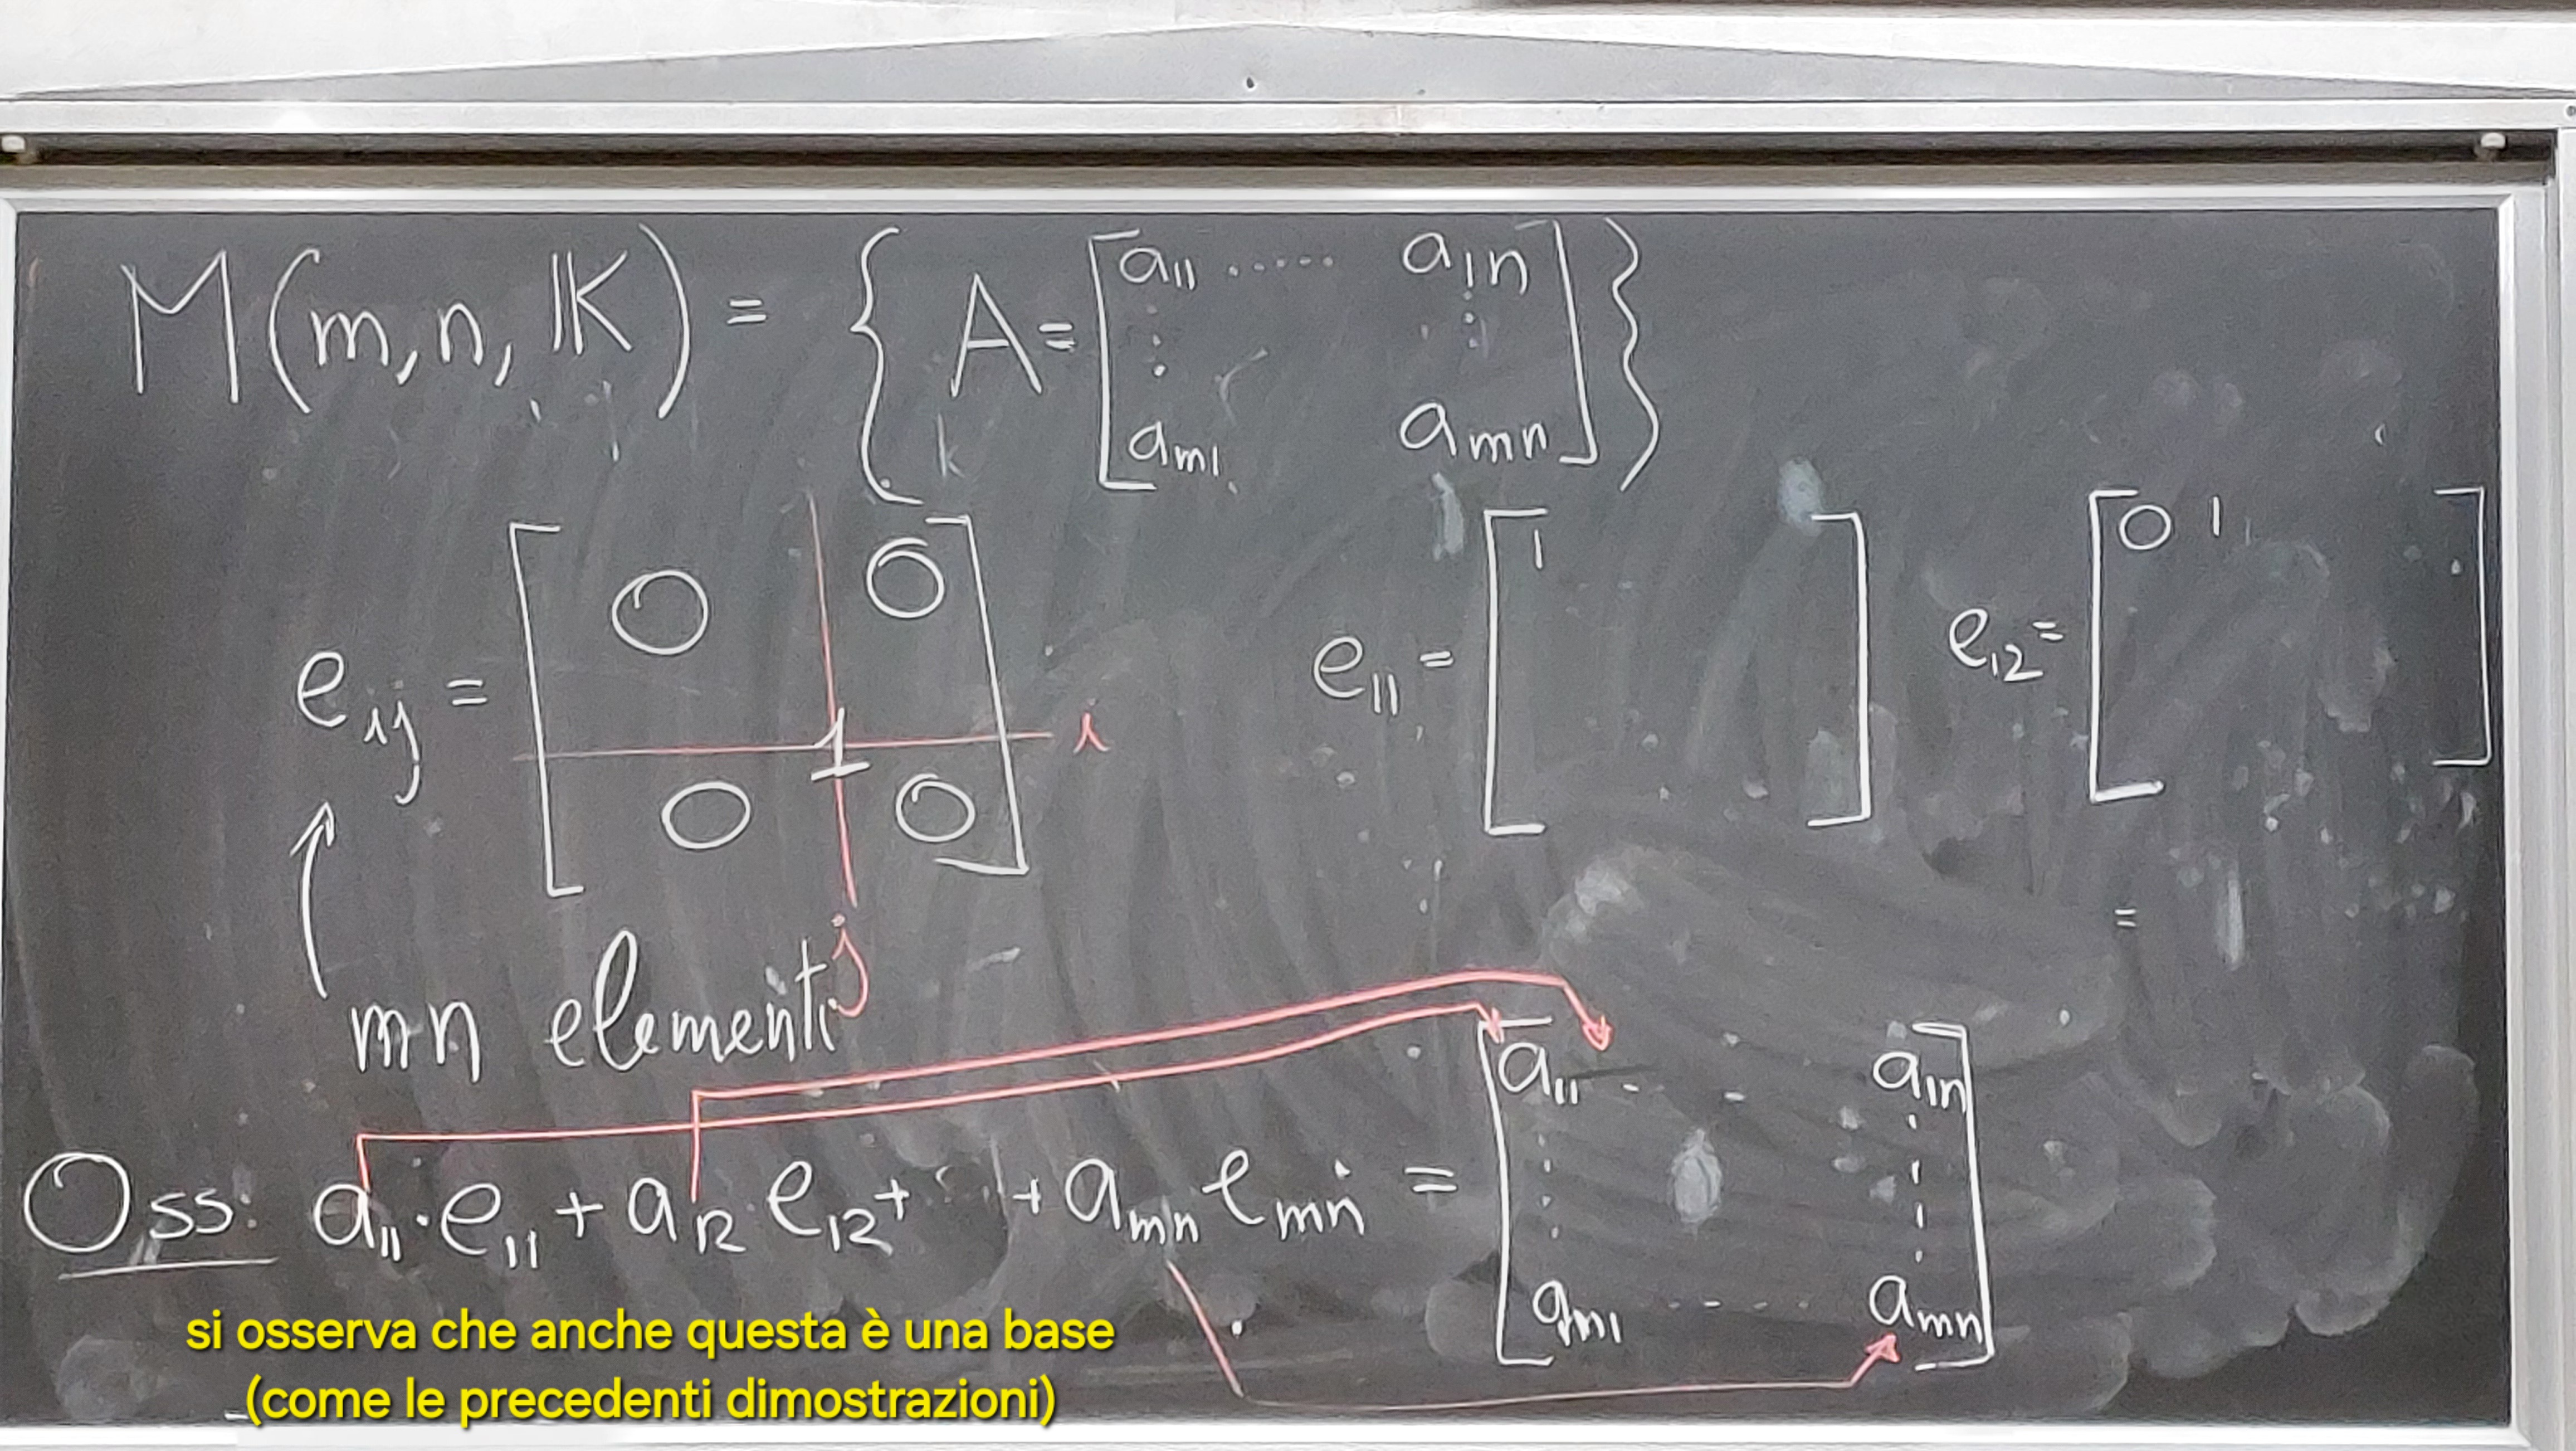 M(m,n,𝕂) = { A = [ a₁₁ ..... a₁n
⋮ ⋮
am₁ amn ] }
eij = [ 0 0
1 i
0 0 ]
j
e₁₁ = [ 1 ]
e₁₂ = [ 0 1 ]
=
mn elementi
Oss. a₁₁·e₁₁ + a₁₂·e₁₂ + ... + amn emn = [ a₁₁ - - - a₁n
⋮ ⋮
am₁ - - - - amn ]
si osserva che anche questa è una base
(come le precedenti dimostrazioni)